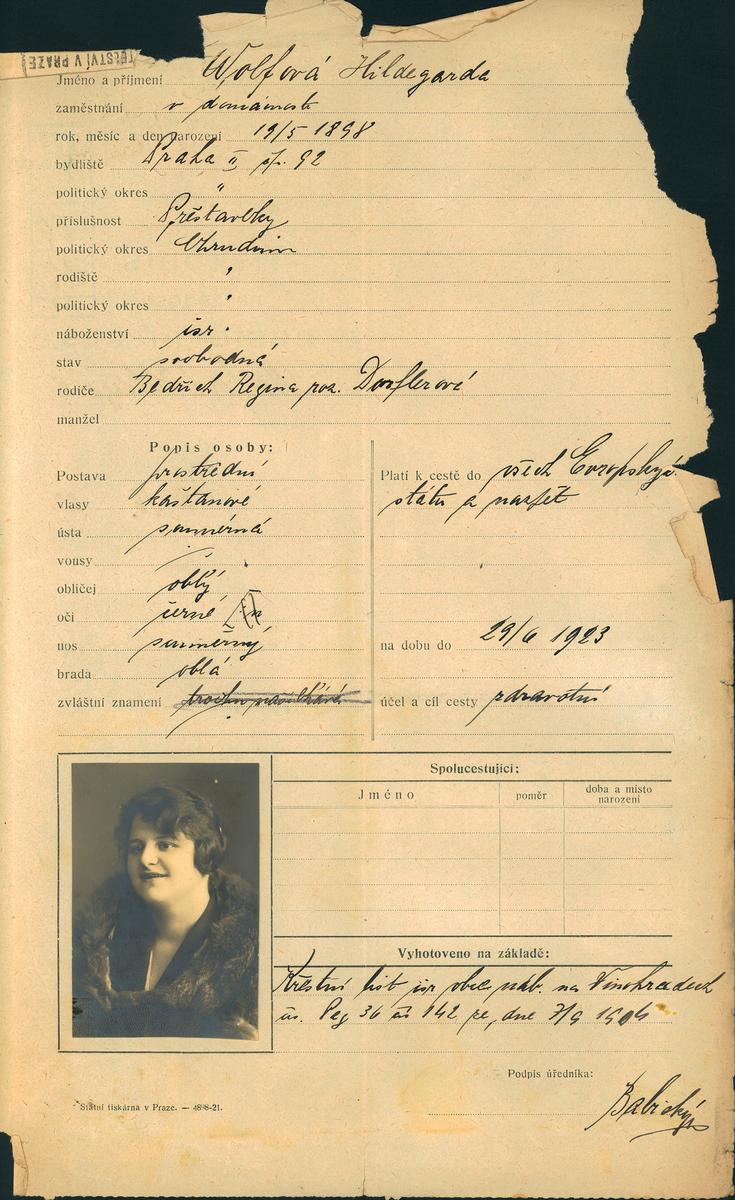 ŘEDITELSTVÍ V PRAZE
Jméno a příjmení Wolfová Hildegarda
zaměstnání v domácnosti
rok, měsíc a den narození 19/5 1898
bydliště Praha II čp. 92
politický okres "
příslušnost Přestavlky
politický okres Chrudim
rodiště "
politický okres "
náboženství isr.
stav svobodná
rodiče Bedřich Regina roz. Dorflerové
manžel
Popis osoby:
Postava prostřední
vlasy kaštanové
ústa souměrná
vousy
obličej oblý
oči černé
nos souměrný
brada oblá
zvláštní znamení
Platí k cestě do všech Evropských
států a nazpět
na dobu do 29/6 1923
účel a cíl cesty zdravotní
Spolucestující:
Jméno poměr doba a místo
narození
Vyhotoveno na základě:
Křestní list isr obce náb. na Vinohradech
36 142 ze dne 7/9
Podpis úředníka:
Babický
Státní tiskárna v Praze. — 4898-21.